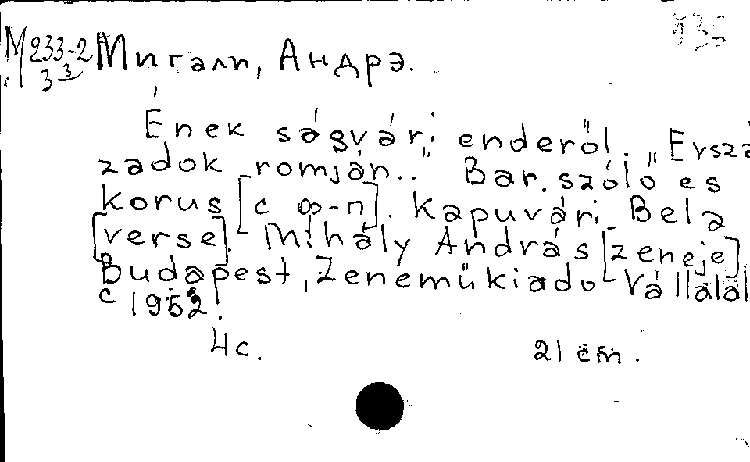 M 233-2 Мигали, Андрэ.
33
Ének ságvári enderöl. "Evszá
zadok romján.." Bar. szóló es
korus [c ф-п]. Kapuvári Bela
[verse]. Mihály András [zeneje]
Budapest, Zenemükiado Vállalal
c 1952.
4c. 21 cm.